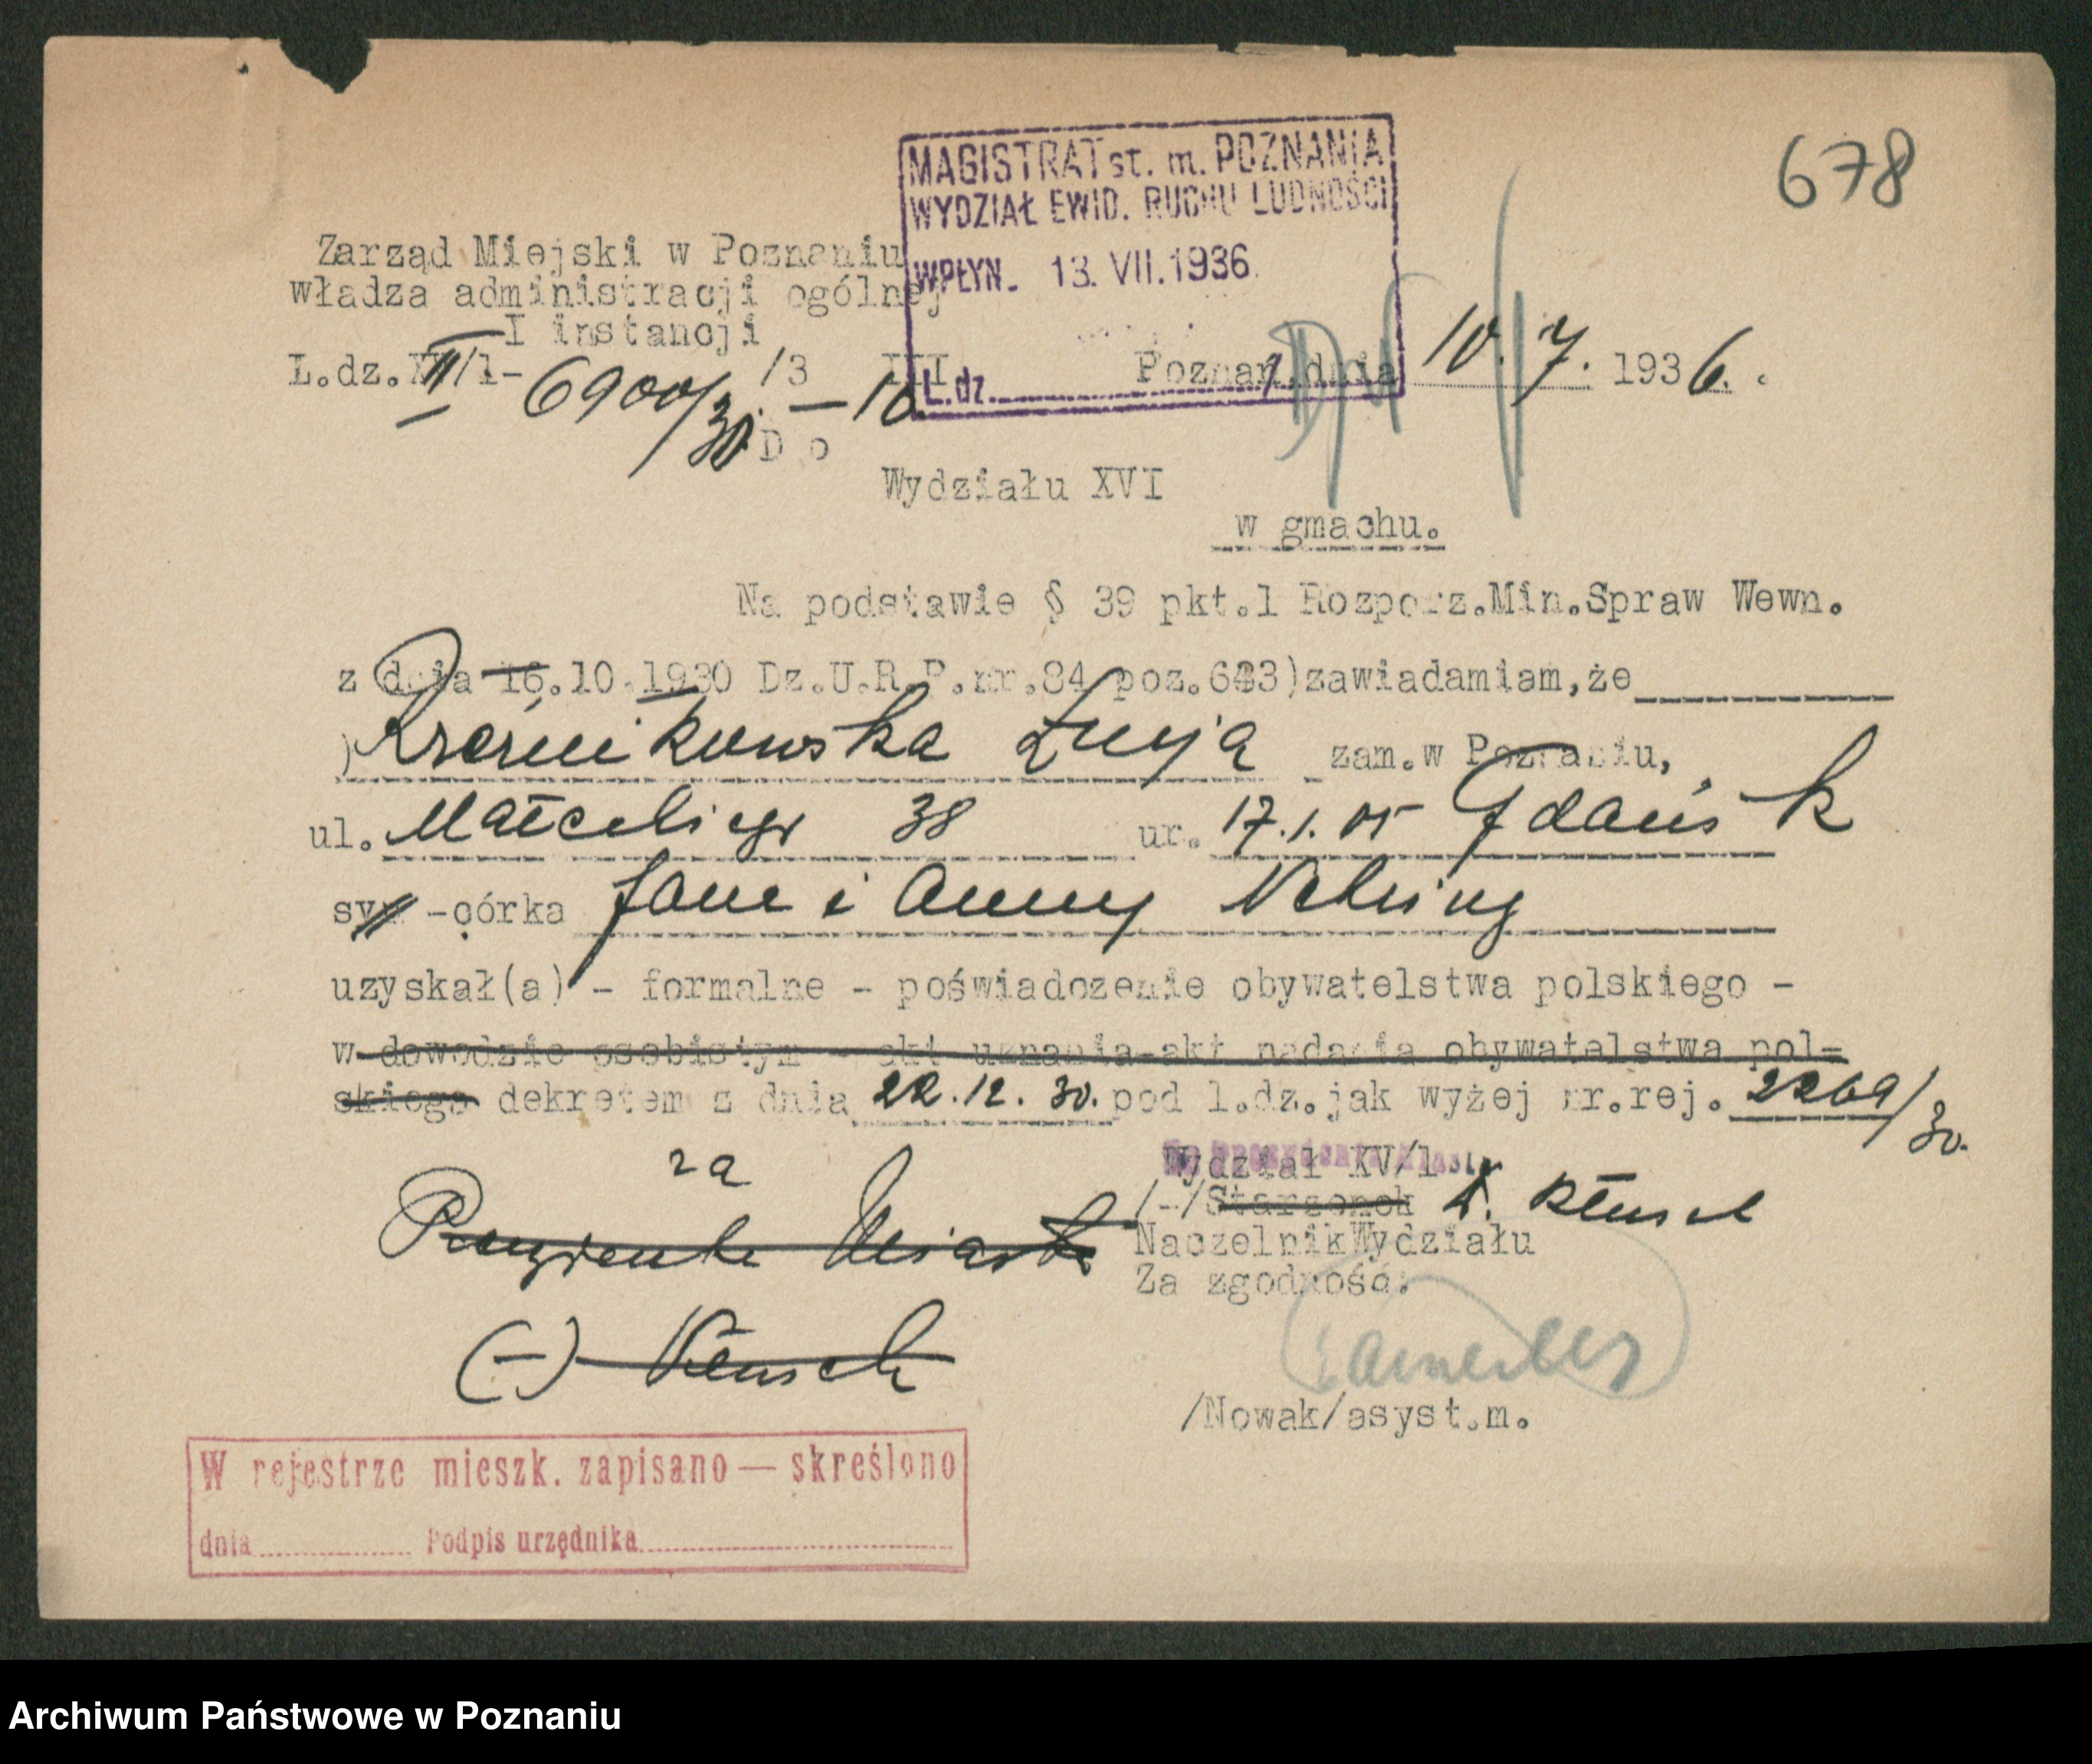 678
MAGISTRAT st. m. POZNANIA
WYDZIAŁ EWID. RUCHU LUDNOŚCI
WPŁYN. 13. VII. 1936.
L. dz.
Zarząd Miejski w Poznaniu
władza administracji ogólnej
I instancji
L.dz. /1- 6900/30 /3 III
Poznań, dnia 10. 7. 1936.
D o
Wydziału XVI
w gmachu.
Na podstawie § 39 pkt.1 Rozporz.Min.Spraw Wewn.
z dnia 16.10.1930 Dz.U.R.P.nr.84 poz.643)zawiadamiam,że
Łucja zam.w Poznaniu,
ul. 38 ur. 17.1.05 Gdańsk
syn -córka Jana i Anny Nehring
uzyskał(a) - formalne - poświadczenie obywatelstwa polskiego -
w dowodzie osobistym - akt uznania-akt nadania obywatelstwa pol-
skiego dekretem z dnia 22.12. 30. pod l.dz.jak wyżej nr.rej. 2269/30.
za
Prezydenta Miasta
(-)
Wydział XV/1
/-/Starzonek
Naczelnik Wydziału
Za zgodność:
/Nowak/asyst.m.
W rejestrze mieszk. zapisano — skreślono
dnia Podpis urzędnika
Archiwum Państwowe w Poznaniu